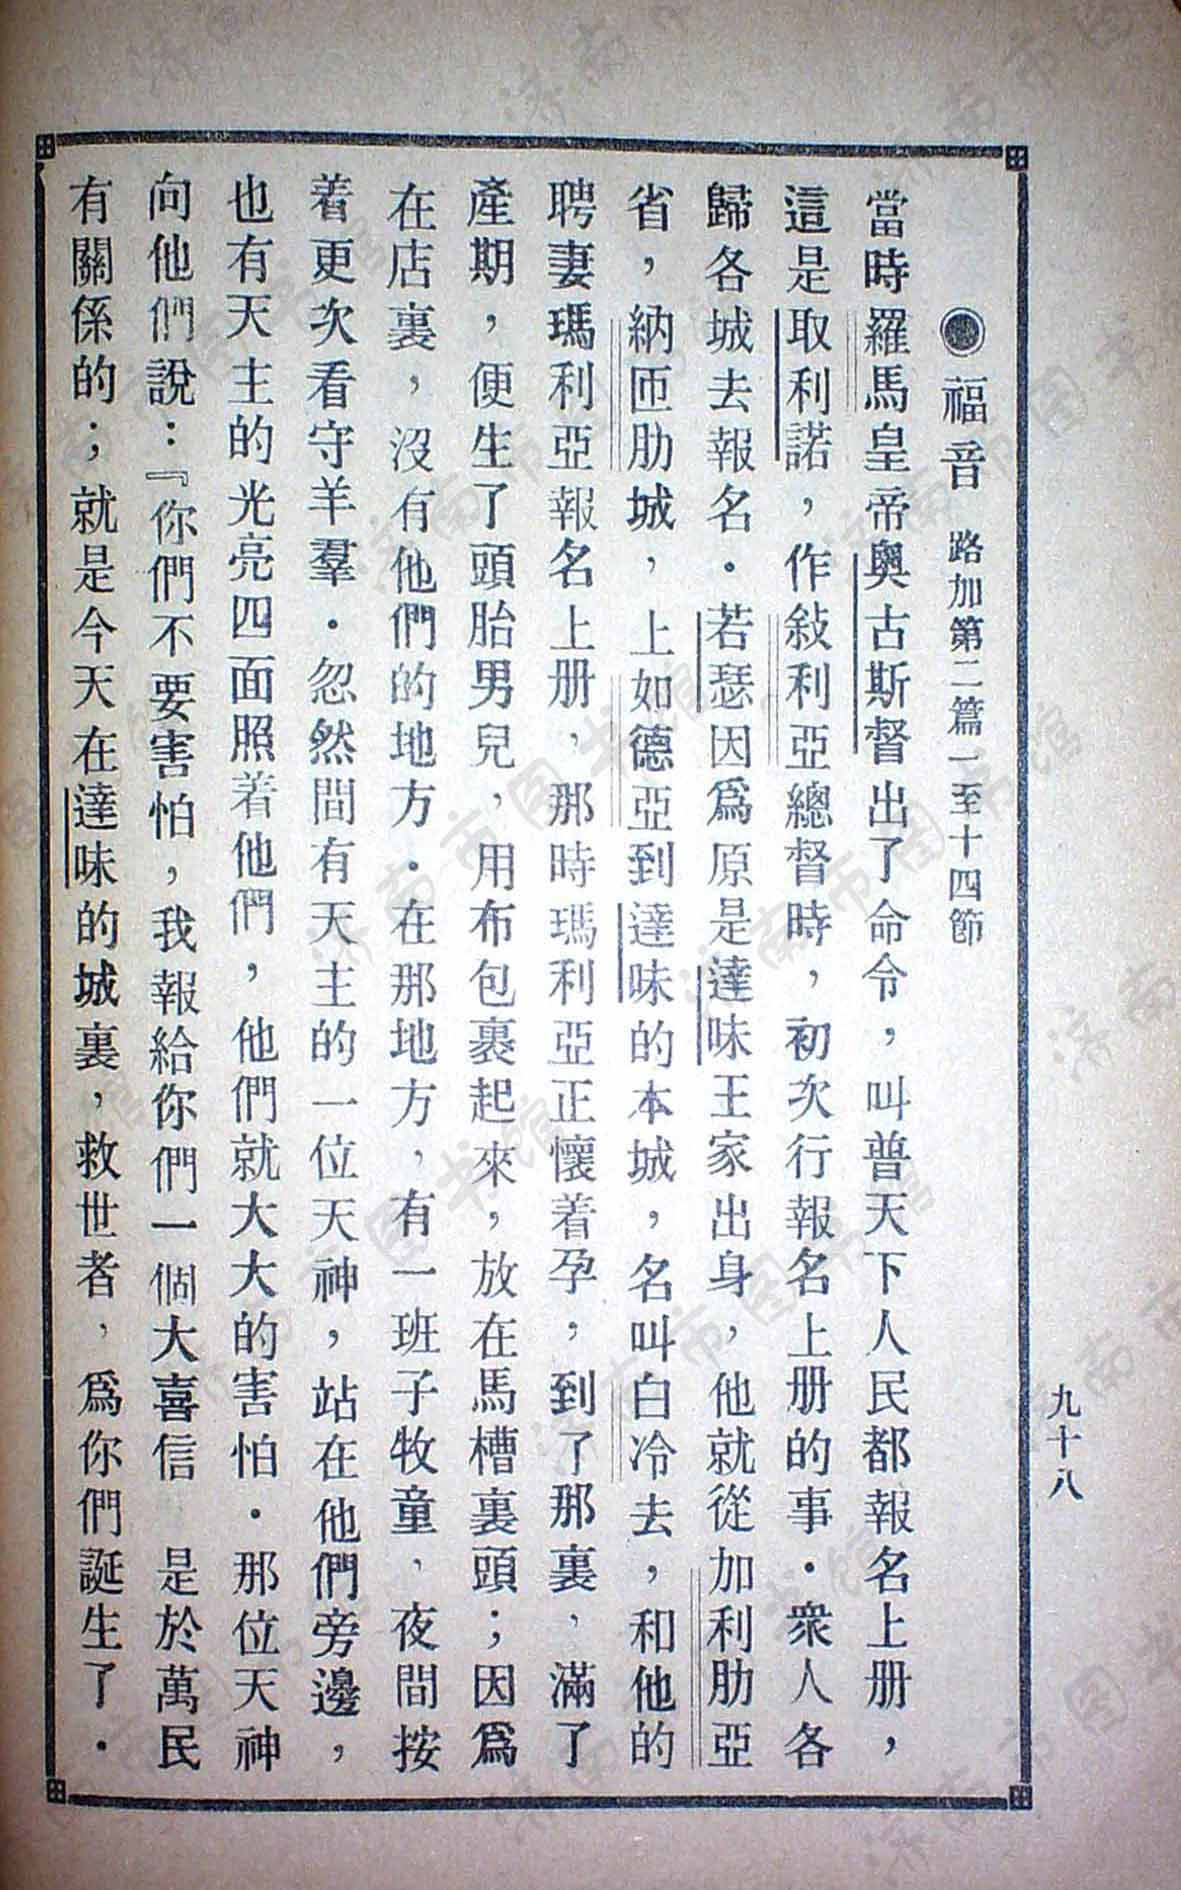 九十八
◉福音 路加第二篇一至十四節
當時羅馬皇帝奧古斯督出了命令，叫普天下人民都報名上册，
這是取利諾，作敍利亞總督時，初次行報名上册的事．衆人各
歸各城去報名．若瑟因爲原是達味王家出身，他就從加利肋亞
省，納匝肋城，上如德亞到達味的本城，名叫白冷去，和他的
聘妻瑪利亞報名上册，那時瑪利亞正懷着孕，到了那裏，滿了
產期，便生了頭胎男兒，用布包裹起來，放在馬槽裏頭；因爲
在店裏，沒有他們的地方．在那地方，有一班子牧童，夜間按
着更次看守羊羣．忽然間有天主的一位天神，站在他們旁邊，
也有天主的光亮四面照着他們，他們就大大的害怕．那位天神
向他們說：『你們不要害怕，我報給你們一個大喜信 是於萬民
有關係的；就是今天在達味的城裏，救世者，爲你們誕生了．
济南市图书馆